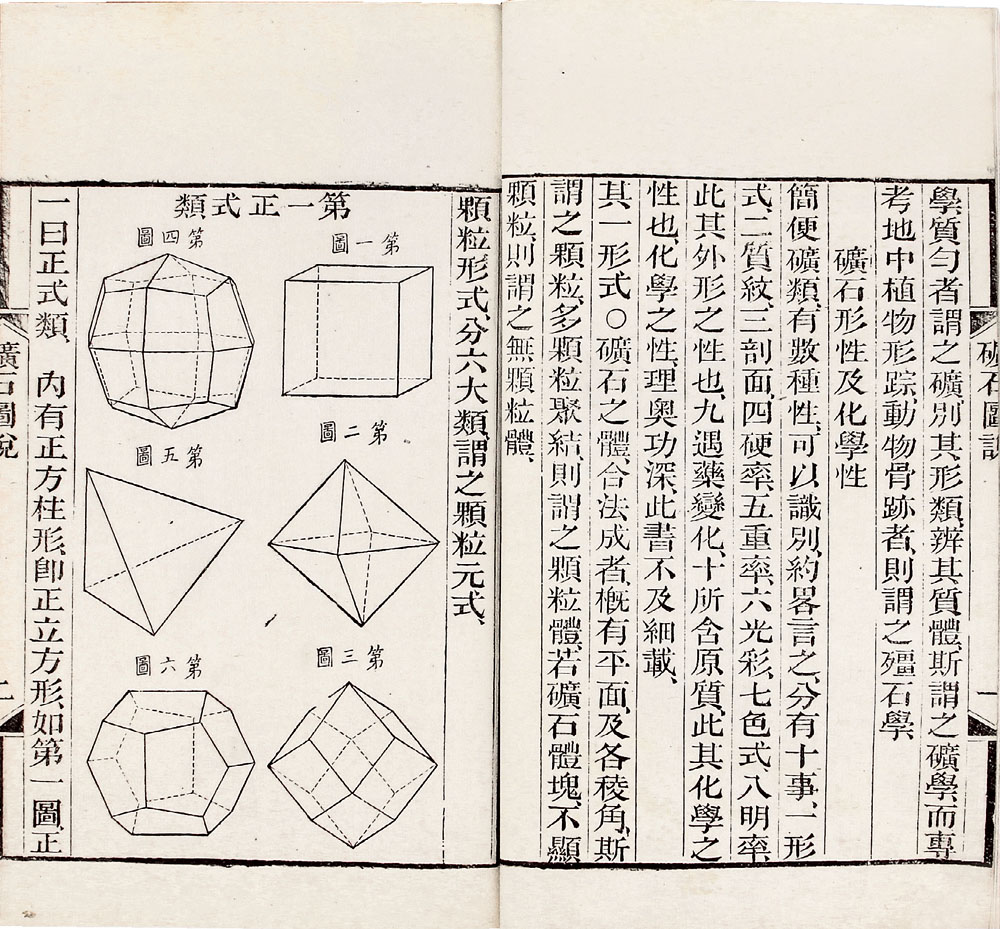 學質勻者謂之礦別其形類、辨其質體、斯謂之礦學、而專
考地中植物形踪、動物骨跡者、則謂之殭石學
礦石形性及化學性
簡便礦類、有數種性、可以識別、約畧言之、分有十事、一形
式、二質紋、三剖面、四硬率、五重率、六光彩、七色式、八明率
此其外形之性也、九遇藥變化、十所含原質、此其化學之
性也、化學之性、理奧功深、此書不及細載、
其一形式〇礦石之體、合法成者、概有平面、及各稜角、斯
謂之顆粒、多顆粒聚結、則謂之顆粒體、若礦石體塊、不顯
顆粒、則謂之無顆粒體、
礦石圖說
一
顆粒形式、分六大類、謂之顆粒元式、
第一正式類
第一圖
第二圖
第三圖
第四圖
第五圖
第六圖
一曰正式類、 內有正方柱形、即正立方形、如第一圖、正
礦石圖說
二